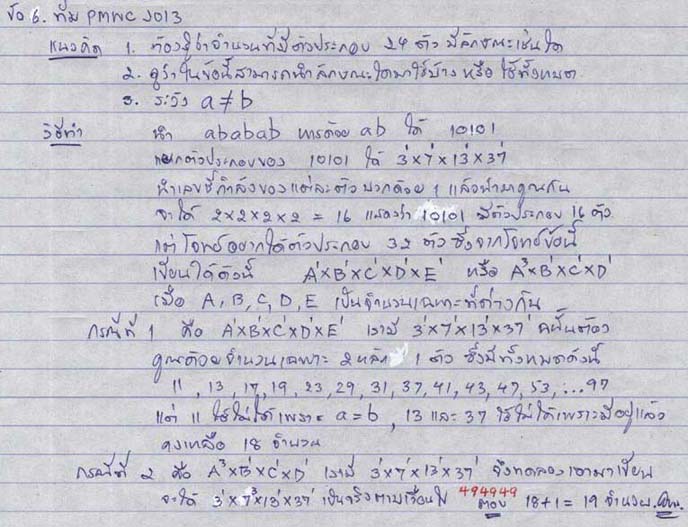 ข้อ 6. ทีม PMWC 2013
แนวคิด 1. ต้องรู้ว่าจำนวนที่มีตัวประกอบ 24 ตัว มีลักษณะเช่นใด
2. ดูว่าในข้อนี้สามารถนำลักษณะใดมาใช้บ้าง หรือ ใช้ทั้งหมด
3. ระวัง a ≠ b
วิธีทำ นำ ababab หารด้วย ab ได้ 10101
แยกตัวประกอบของ 10101 ได้ 3¹×7¹×13¹×37¹
นำเลขชี้กำลังของแต่ละตัว บวกด้วย 1 แล้วนำมาคูณกัน
จะได้ 2×2×2×2 = 16 แสดงว่า 10101 มีตัวประกอบ 16 ตัว
แต่ โจทย์อยากได้ตัวประกอบ 32 ตัว ซึ่งจากโจทย์ข้อนี้
เขียนได้ดังนี้ A¹×B¹×C¹×D¹×E¹ หรือ A³×B¹×C¹×D¹
เมื่อ A, B, C, D, E เป็นจำนวนเฉพาะที่ต่างกัน
กรณีที่ 1 คือ A¹×B¹×C¹×D¹×E¹ เรามี 3¹×7¹×13¹×37¹ ฉะนั้นต้อง
คูณด้วยจำนวนเฉพาะ 2 หลัก 1 ตัว ซึ่งมีทั้งหมดดังนี้
11, 13, 17, 19, 23, 29, 31, 37, 41, 43, 47, 53, ...97
แต่ 11 ใช้ไม่ได้เพราะ a = b, 13 และ 37 ใช้ไม่ได้เพราะมีอยู่แล้ว
จึงเหลือ 18 จำนวน
กรณีที่ 2 คือ A³×B¹×C¹×D¹ เรามี 3¹×7¹×13¹×37¹ จึงทดลองเอามาเขียน
จะได้ 3¹×7³×13¹×37¹ เป็นจริงตามเงื่อนไข 494949 ตอบ 18+1 = 19 จำนวน